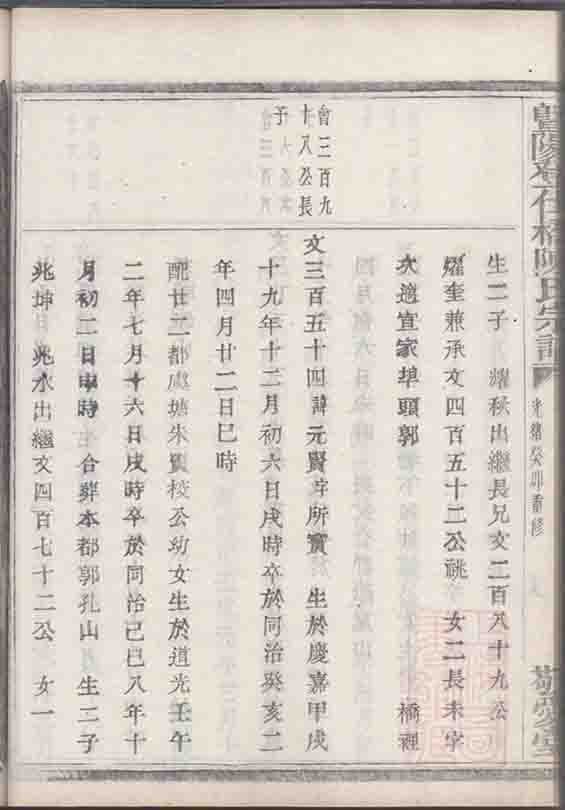 陽
仁橋陳氏宗譜
光緒癸卯重修
敬愛堂
生二子 燿秋出繼長兄文二百八十九公
燿奎兼承文四百五十二公祧 女二長未字
次適宜家埠頭郭 橋裡
會三百九
十八公長
子
文三百五十四諱元賢字所寶 生於慶嘉甲戌
十九年十二月初六日戌時卒於同治癸亥二
年四月廿二日巳時
配廿二都處塘朱贤校公幼女生於道光壬午
二年七月十六日戌時卒於同治己巳八年十
月初二日申時 合葬本都郭孔山 生二子
兆坤 兆水出繼文四百七十二公 女一